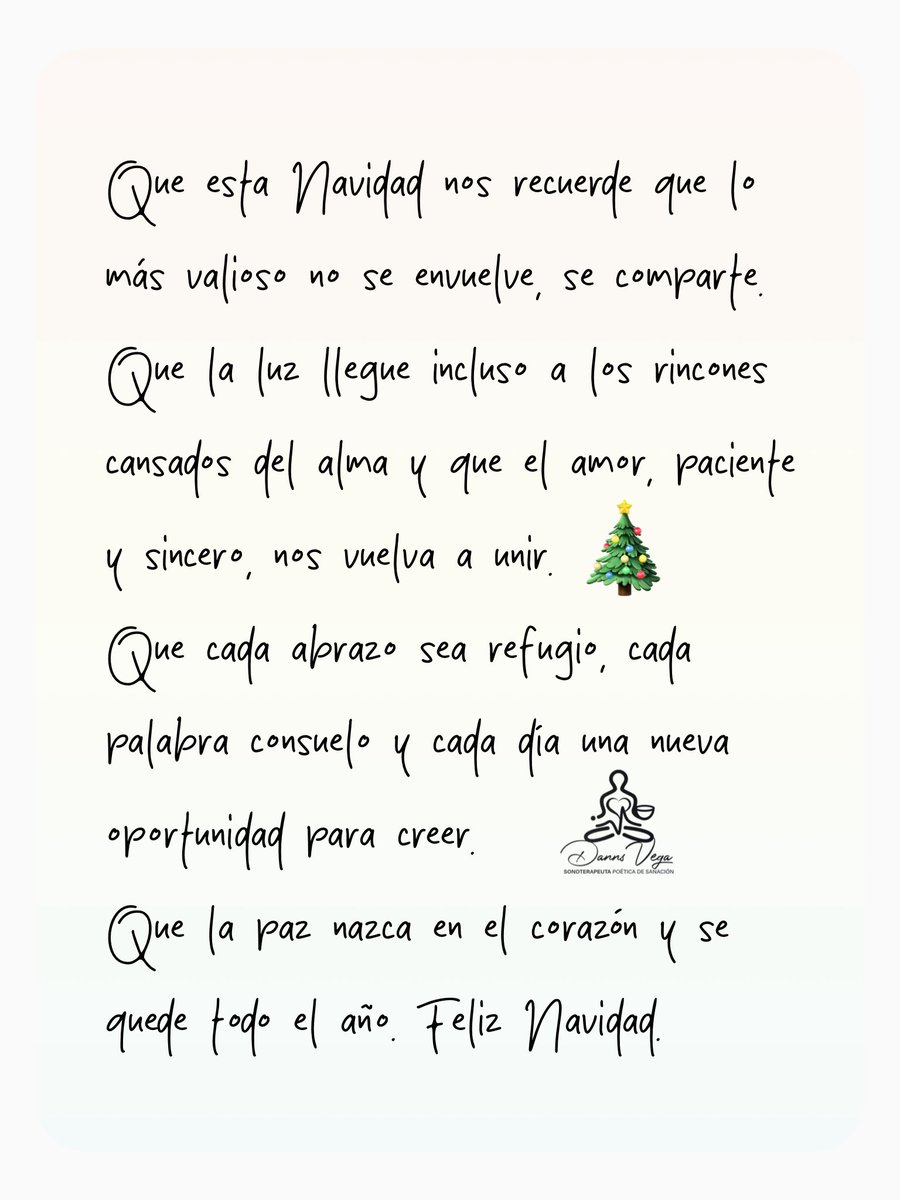 Que esta Navidad nos recuerde que lo
más valioso no se envuelve, se comparte.
Que la luz llegue incluso a los rincones
cansados del alma y que el amor, paciente
y sincero, nos vuelva a unir. 🎄
Que cada abrazo sea refugio, cada
palabra consuelo y cada día una nueva
oportunidad para creer.
Danns Vega
SONOTERAPEUTA POÉTICA DE SANACIÓN
Que la paz nazca en el corazón y se
quede todo el año. Feliz Navidad.